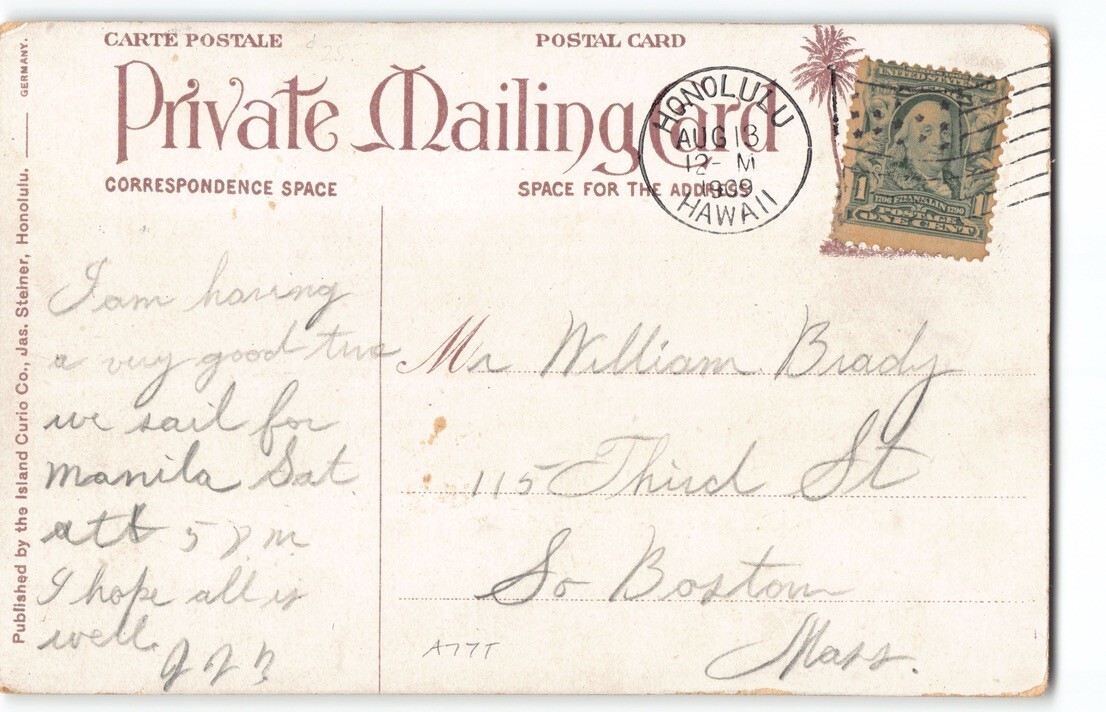 CARTE POSTALE
POSTAL CARD
Private Mailing Card
CORRESPONDENCE SPACE
SPACE FOR THE ADDRESS
HONOLULU
AUG 13
12- M
1909
HAWAII
UNITED STATES
1 1
1706 FRANKLIN 1790
POSTAGE
ONE CENT
Published by the Island Curio Co., Jas. Steiner, Honolulu. GERMANY.
I am having
a very good
we sail for
Manila Sat.
5 P m
I hope all is
well.
Mr William Brady
115 Third St
So Boston
Mass.
A77T